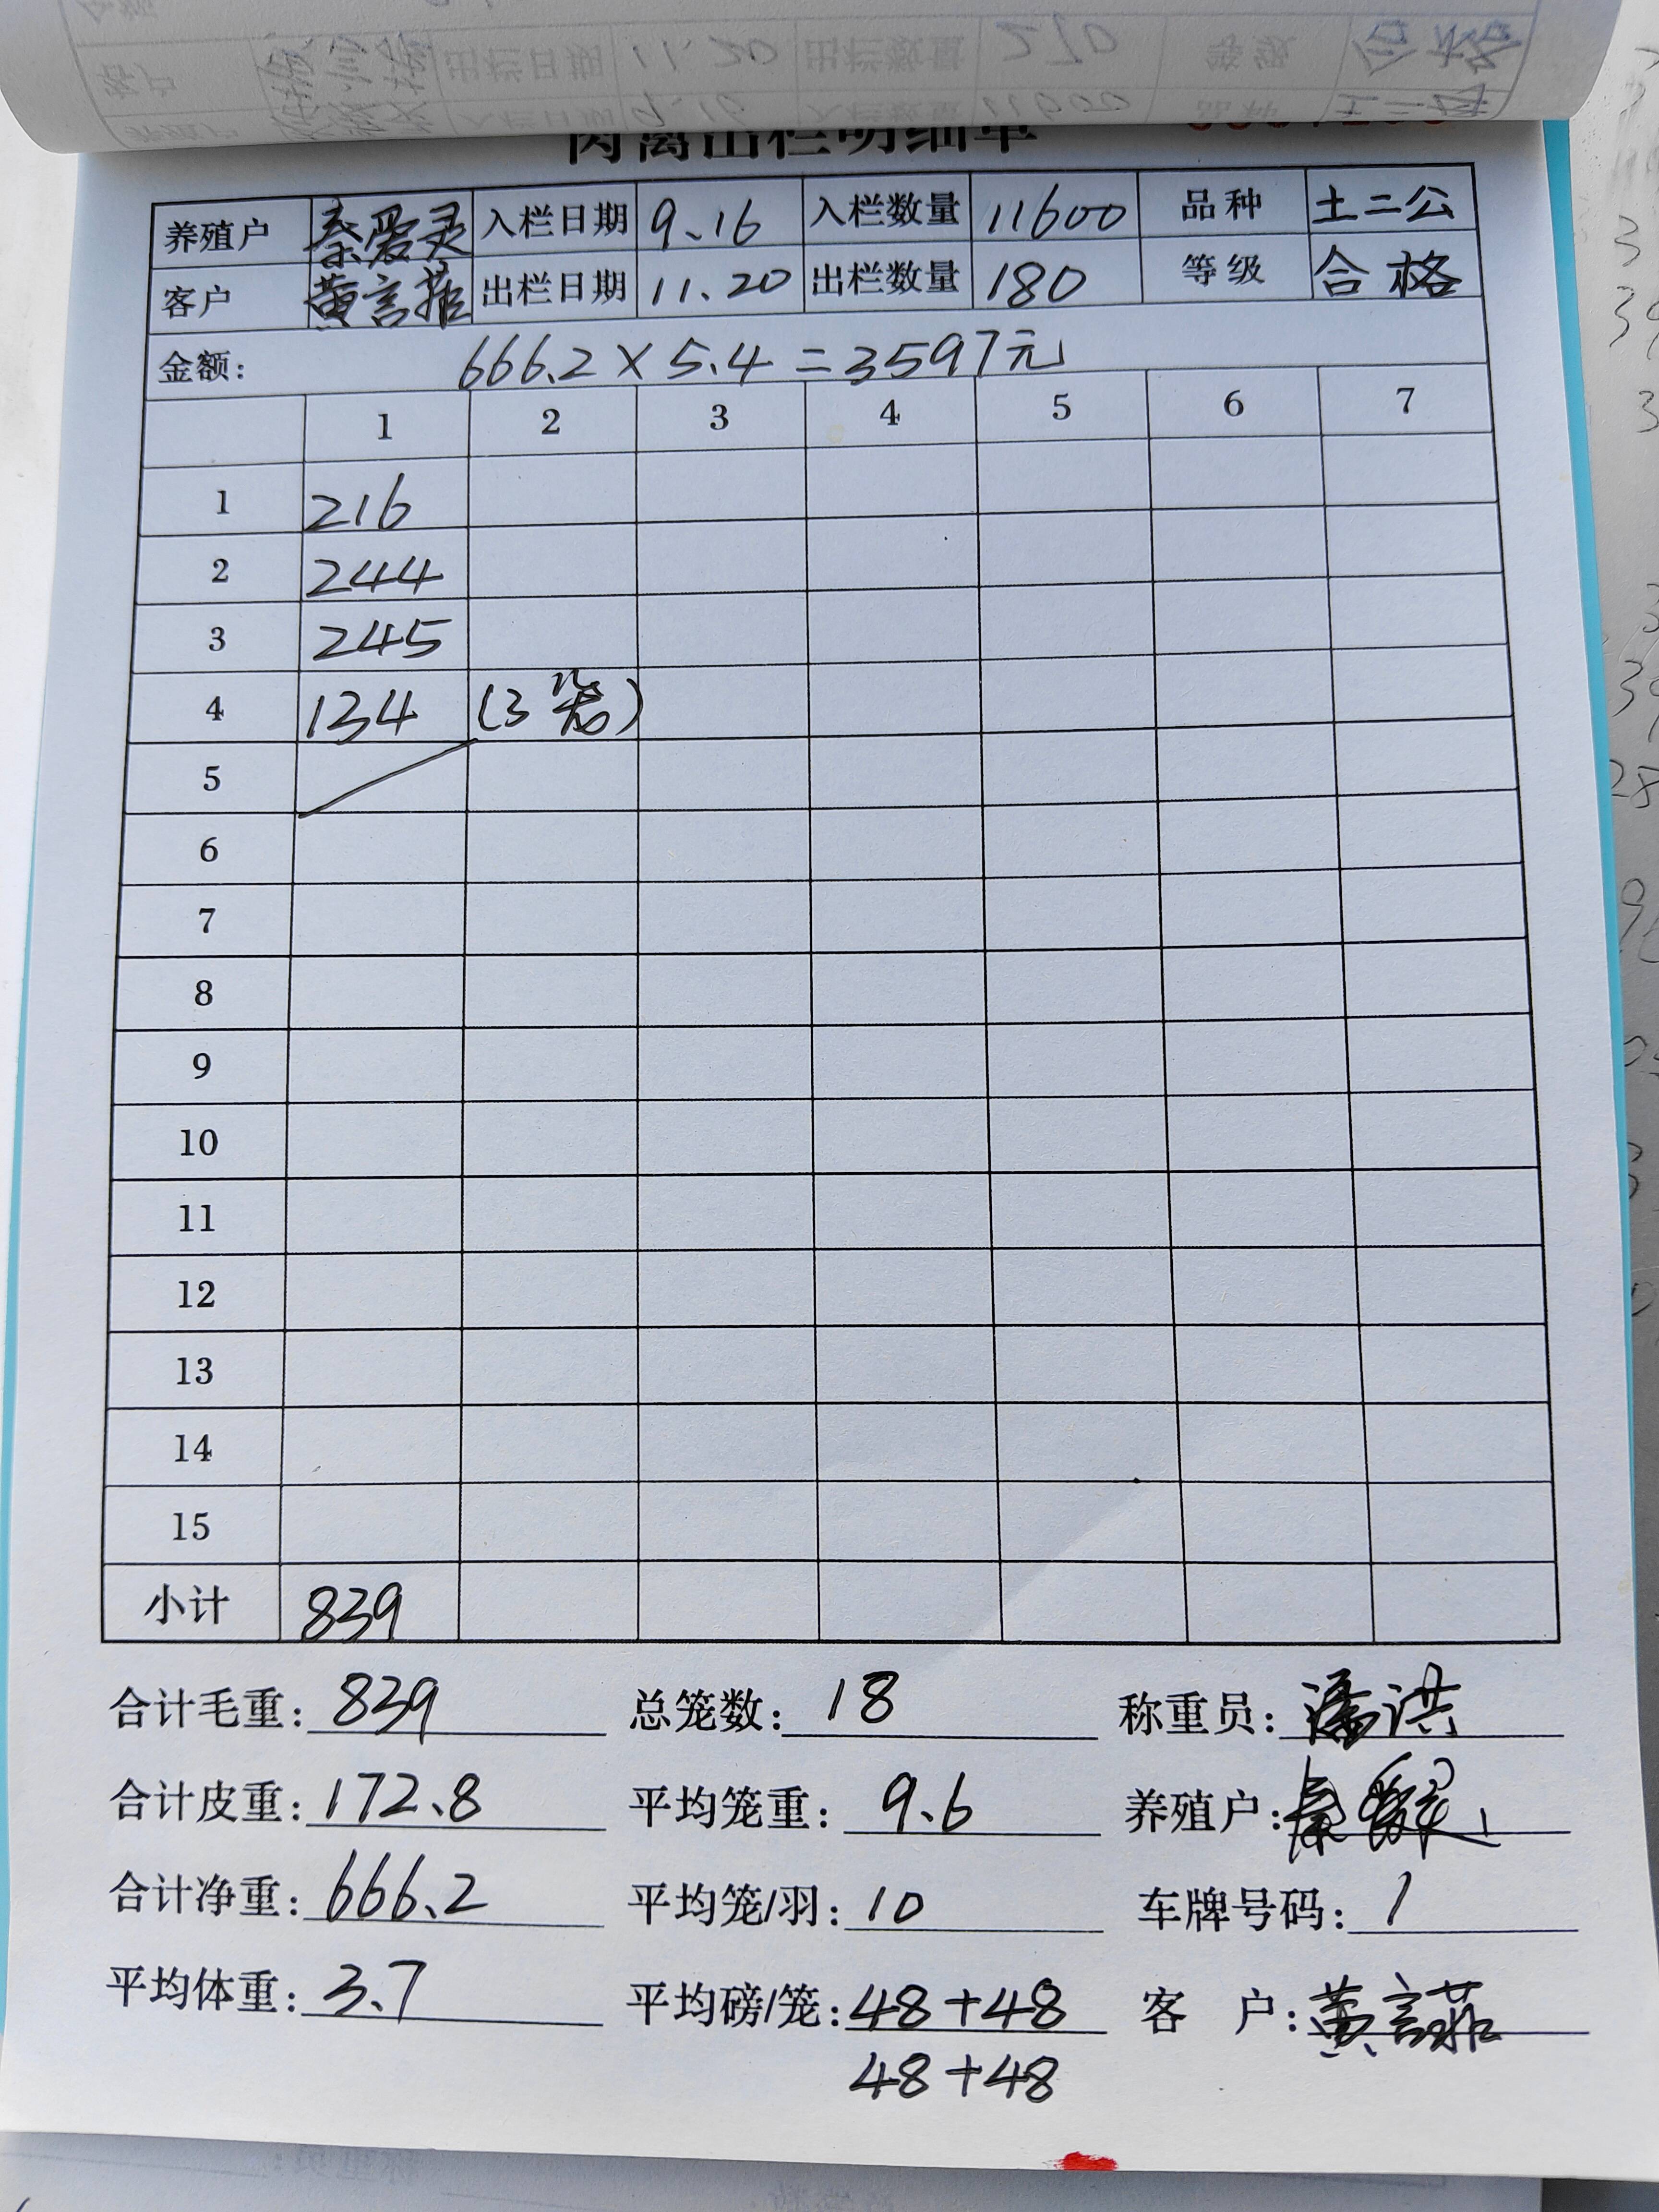 肉禽出栏明细单
养殖户 秦爱灵 入栏日期 9.16 入栏数量 11600 品种 土二公
客户 黄言菲 出栏日期 11.20 出栏数量 180 等级 合格
金额: 666.2×5.4=3597元
1 2 3 4 5 6 7
1 216
2 244
3 245
4 134 (3笼)
5
6
7
8
9
10
11
12
13
14
15
小计 839
合计毛重: 839 总笼数: 18 称重员: 潘洪
合计皮重: 172.8 平均笼重: 9.6 养殖户:
合计净重: 666.2 平均笼/羽: 10 车牌号码: 1
平均体重: 3.7 平均磅/笼: 48+48 客 户: 黄言菲
48+48